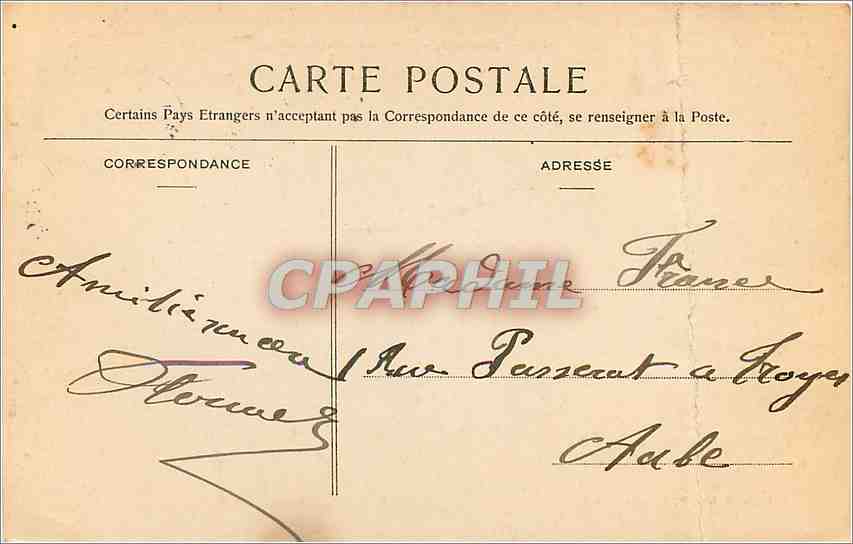 CARTE POSTALE
Certains Pays Etrangers n'acceptant pas la Correspondance de ce côté, se renseigner à la Poste.
CORRESPONDANCE
ADRESSE
CPAPHIL
Madame France
1 Rue Passerat a Troyes
Aube